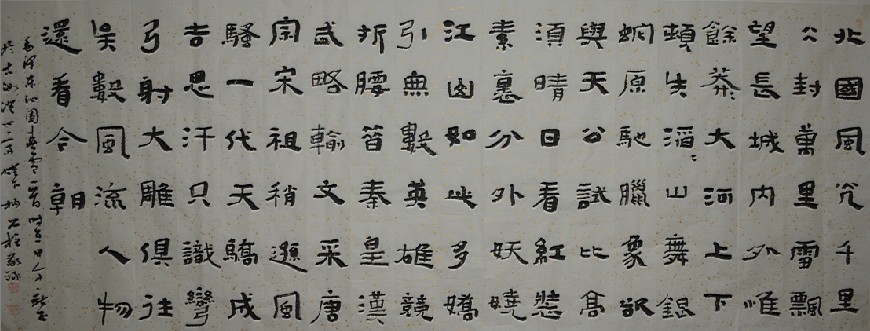 北國風光千里
仌封萬里雪飄
望長城內外惟
餘莽〻大河上下
頓失滔〻山舞銀
蛇原馳臘象欲
與天公試比高
須晴日看紅裝
素裹分外妖嬈
江山如此多嬌
引無數英雄競
折腰昔秦皇漢
武略輸文采唐
宗宋祖稍遜風
騷一代天驕成
吉思汗只識彎
弓射大雕俱往
矣數風流人物
還看今朝
毛澤東沁園春雪一首